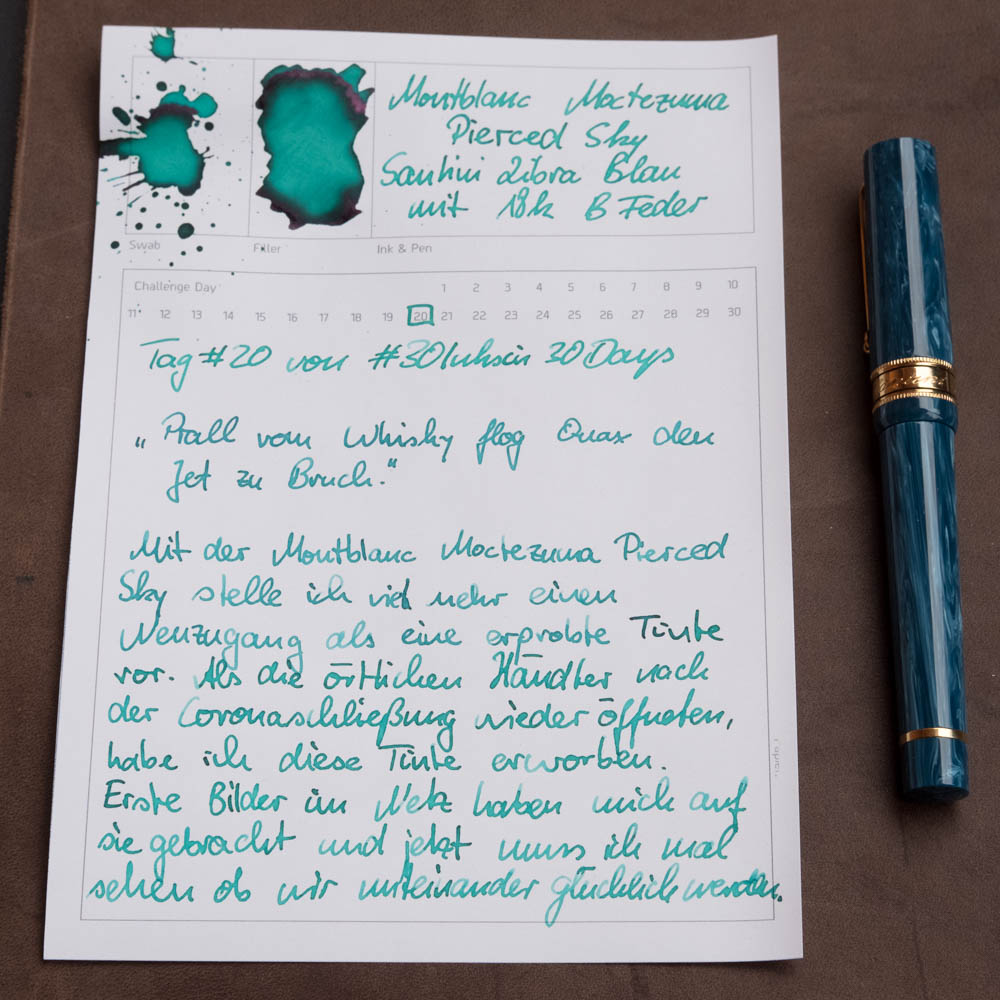 Montblanc Moctezuma
Pierced Sky
Santini Libra Blau
mit 18k B Feder
Swab Filler Ink & Pen
Challenge Day 1 2 3 4 5 6 7 8 9 10
11 12 13 14 15 16 17 18 19 20 21 22 23 24 25 26 27 28 29 30
Tag #20 von #30Inksin 30Days
„Prall vom Whisky flog Quax den
Jet zu Bruch."
Mit der Montblanc Moctezuma Pierced
Sky stelle ich viel mehr einen
Neuzugang als eine erprobte Tinte
vor. Als die örtlichen Händler nach
der Coronaschließung wieder öffneten,
habe ich diese Tinte erworben.
Erste Bilder im Netz haben mich auf
sie gebracht und jetzt muss ich mal
sehen ob wir miteinander glücklich werden.